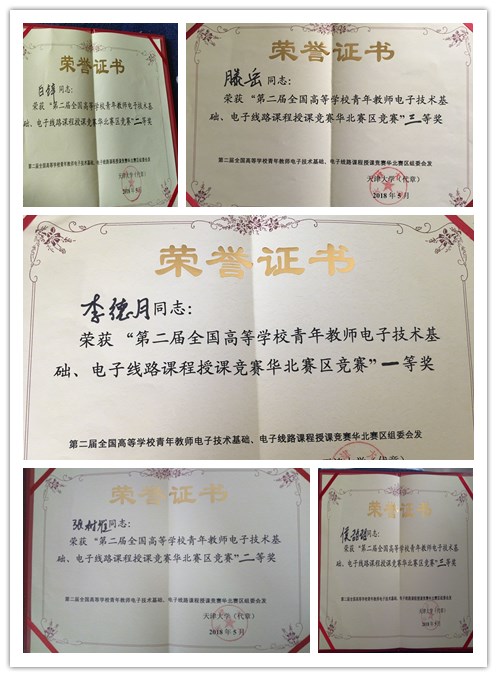 荣誉证书
白锌同志:
荣获“第二届全国高等学校青年教师电子技术基
础、电子线路课程授课竞赛华北赛区竞赛”二等奖
第二届全国高等学校青年教师电子技术基础、电子线路课程授课竞赛华北赛区组委会发
天津大学(代章)
2018年5月
荣誉证书
滕岳同志:
荣获“第二届全国高等学校青年教师电子技术基
础、电子线路课程授课竞赛华北赛区竞赛”三等奖
第二届全国高等学校青年教师电子技术基础、电子线路课程授课竞赛华北赛区组委会发
天津大学(代章)
2018年5月
荣誉证书
李德月同志:
荣获“第二届全国高等学校青年教师电子技术基
础、电子线路课程授课竞赛华北赛区竞赛”一等奖
第二届全国高等学校青年教师电子技术基础、电子线路课程授课竞赛华北赛区组委会发
天津大学(代章)
荣誉证书
张树同志:
荣获“第二届全国高等学校青年教师电子技术基
础、电子线路课程授课竞赛华北赛区竞赛”二等奖
第二届全国高等学校青年教师电子技术基础、电子线路课程授课竞赛华北赛区组委会发
天津大学(代章)
2018年5月
荣誉证书
同志:
荣获“第二届全国高等学校青年教师电子技术基
础、电子线路课程授课竞赛华北赛区竞赛”三等奖
第二届全国高等学校青年教师电子技术基础、电子线路课程授课竞赛华北赛区组委会发
天津大学(代章)
2018年5月